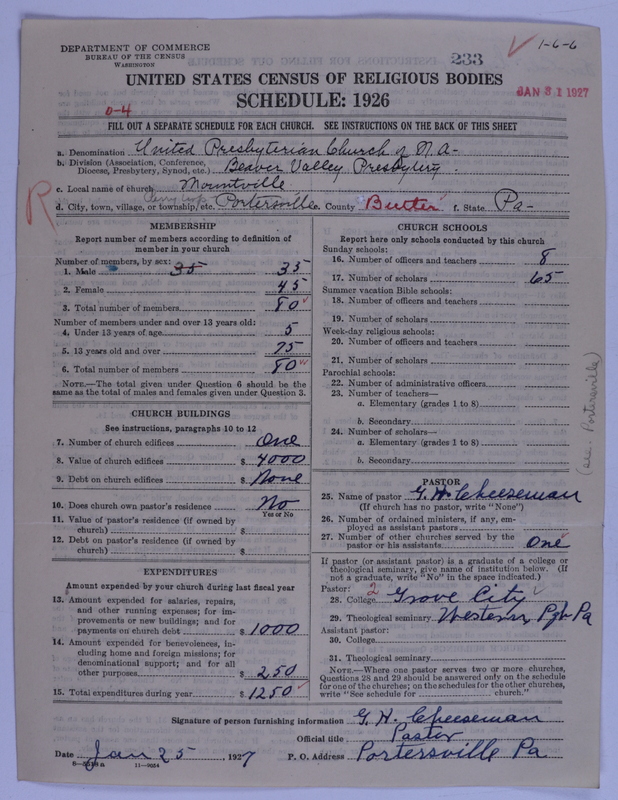 DEPARTMENT OF COMMERCE
BUREAU OF THE CENSUS
WASHINGTON
233
1-6-6
UNITED STATES CENSUS OF RELIGIOUS BODIES
SCHEDULE: 1926
JAN 31 1927
0-4
FILL OUT A SEPARATE SCHEDULE FOR EACH CHURCH. SEE INSTRUCTIONS ON THE BACK OF THIS SHEET
a. Denomination United Presbyterian Church of N.A-
b. Division (Association, Conference, Diocese, Presbytery, Synod, etc.) Beaver Valley Presbytery.
c. Local name of church Mountville
R
d. City, town, village, or township, etc. Portersville e. County Butler f. State Pa-
MEMBERSHIP
Report number of members according to definition of member in your church
Number of members, by sex:
1. Male 35 35
2. Female 45
3. Total number of members 80
Number of members under and over 13 years old:
4. Under 13 years of age 5
5. 13 years old and over 75
6. Total number of members 80
NOTE.—The total given under Question 6 should be the same as the total of males and females given under Question 3.
CHURCH BUILDINGS
See instructions, paragraphs 10 to 12
7. Number of church edifices One
8. Value of church edifices $ 4000
9. Debt on church edifices $ None
10. Does church own pastor's residence No
Yes or No
11. Value of pastor's residence (if owned by church) $
12. Debt on pastor's residence (if owned by church) $
EXPENDITURES
Amount expended by your church during last fiscal year
13. Amount expended for salaries, repairs, and other running expenses; for improvements or new buildings; and for payments on church debt $ 1000
14. Amount expended for benevolences, including home and foreign missions; for denominational support; and for all other purposes $ 250
15. Total expenditures during year $ 1250
CHURCH SCHOOLS
Report here only schools conducted by this church
Sunday schools:
16. Number of officers and teachers 8
17. Number of scholars 65
Summer vacation Bible schools:
18. Number of officers and teachers
19. Number of scholars
Week-day religious schools:
20. Number of officers and teachers
21. Number of scholars
Parochial schools:
22. Number of administrative officers
23. Number of teachers—
a. Elementary (grades 1 to 8)
b. Secondary
24. Number of scholars—
a. Elementary (grades 1 to 8)
b. Secondary
(see Portersville)
PASTOR
25. Name of pastor G. H. Cheeseman
(If church has no pastor, write "None")
26. Number of ordained ministers, if any, employed as assistant pastors
27. Number of other churches served by the pastor or his assistants One
If pastor (or assistant pastor) is a graduate of a college or theological seminary, give name of institution below. (If not a graduate, write "No" in the space indicated.)
Pastor: 2
28. College Grove City
29. Theological seminary Western Pgh Pa
Assistant pastor:
30. College
31. Theological seminary
NOTE.—Where one pastor serves two or more churches, Questions 28 and 29 should be answered only on the schedule for one of the churches; on the schedules for the other churches, write "See schedule for church."
Signature of person furnishing information G. H. Cheeseman
Official title Pastor
Date Jan 25, 1927 P. O. Address Portersville Pa
11—9054